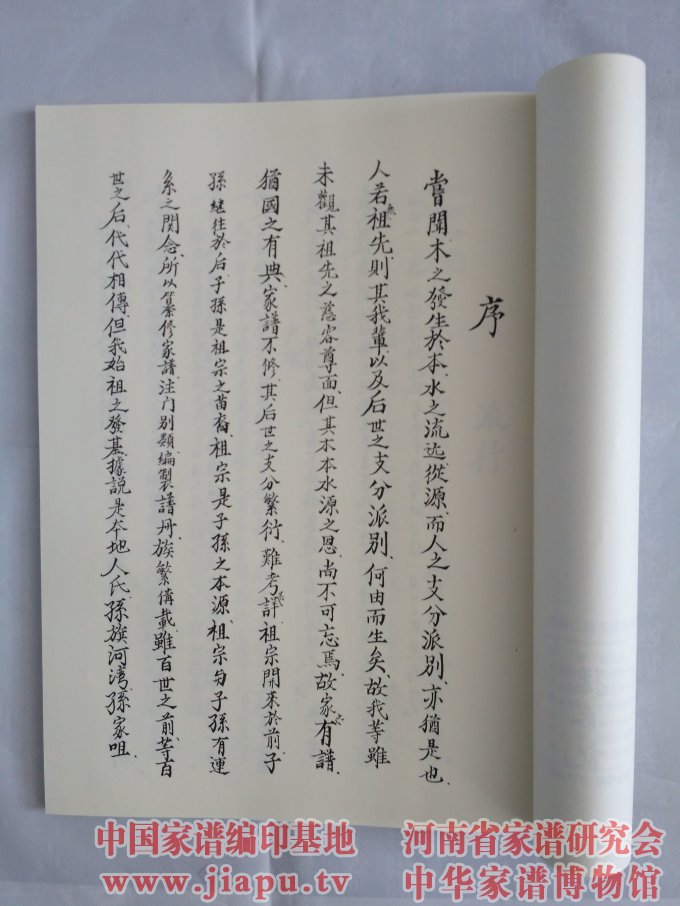 序
嘗聞木之發生於本、水之流远從源、而人之支分派別、亦猶是也、
人若無祖先、則其我輩以及后世之支分派別、何由而生矣、故我等雖
未觀其祖先之慈容尊面、但其木本水源之恩、尚不可忘焉、故家之有譜、
猶國之有典、家譜不修、其后世之支分繁衍、難考其詳、祖宗開來於前、子
孫継往於后、子孫是祖宗之苗裔、祖宗是子孫之本源、祖宗与子孫有連
系之関念、所以纂修家譜、注门別類、編製譜册、族繁備載、雖百世之前、等百
世之后、代代相傳、但我始祖之發基、據説是本地人氏、孫旗河湾、孫家咀
中国家谱编印基地 河南省家谱研究会
www.jiapu.tv 中华家谱博物馆